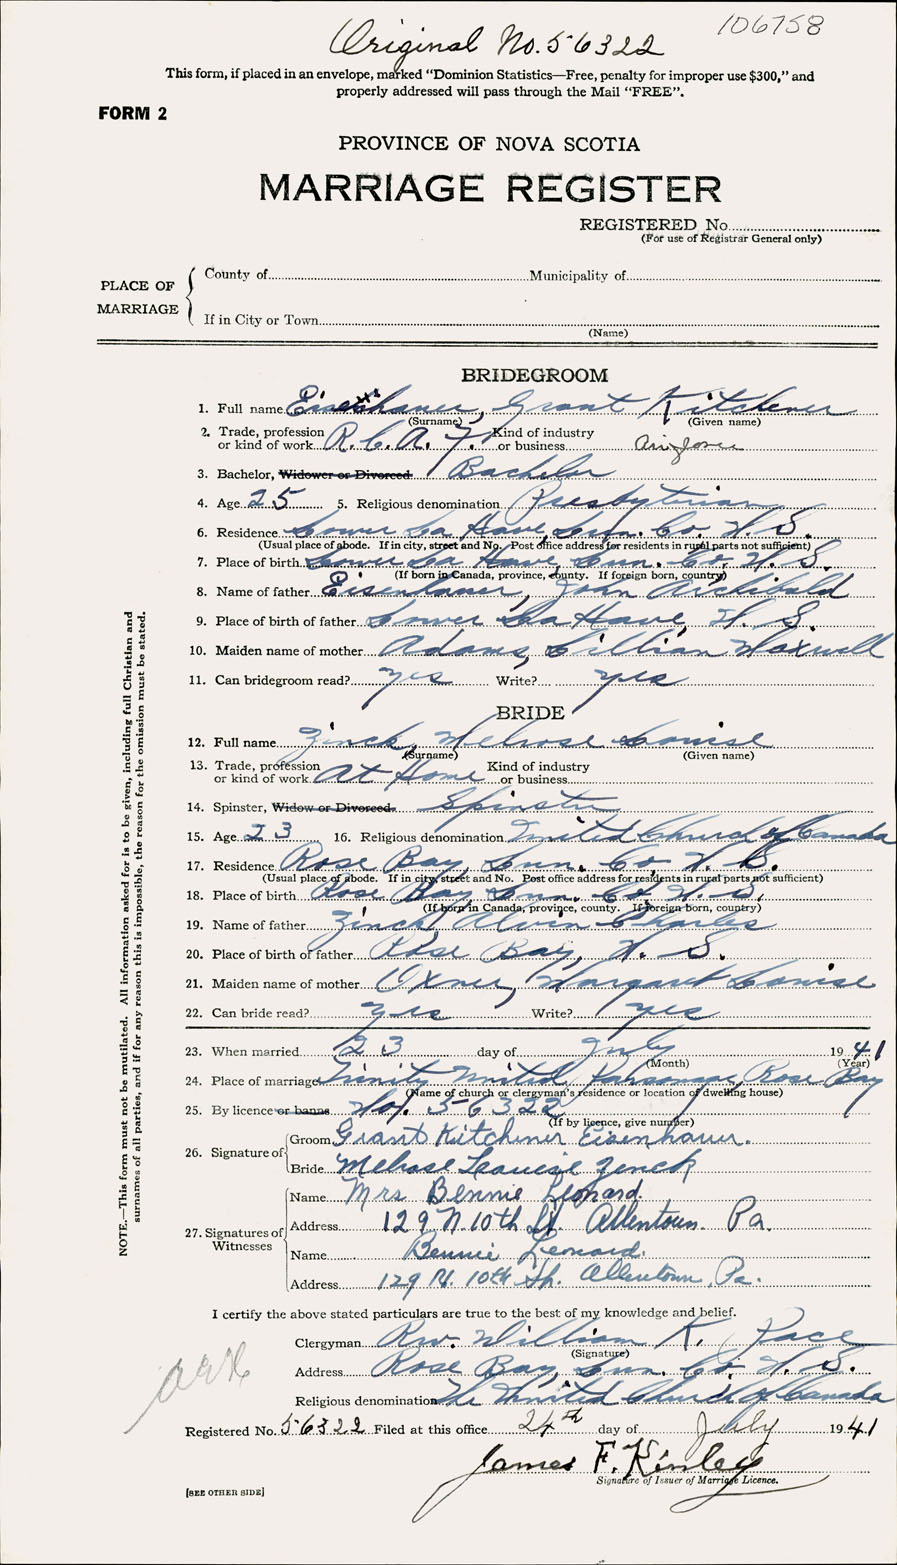 106758
Original No. 56322
This form, if placed in an envelope, marked “Dominion Statistics—Free, penalty for improper use $300,” and
properly addressed will pass through the Mail “FREE”.
FORM 2
PROVINCE OF NOVA SCOTIA
MARRIAGE REGISTER
REGISTERED No.
(For use of Registrar General only)
PLACE OF MARRIAGE
County of Municipality of
If in City or Town
(Name)
BRIDEGROOM
1. Full name Eisenhauer, Grant Kitchener
(Surname) (Given name)
2. Trade, profession or kind of work R.C.A.F. Kind of industry or business Airforce
3. Bachelor, Widower or Divorced. Bachelor
4. Age 25 5. Religious denomination Presbyterian
6. Residence Lower La Have, Lun. Co. N. S.
(Usual place of abode. If in city, street and No. Post office address for residents in rural parts not sufficient)
7. Place of birth Lower La Have, Lun. Co. N. S.
(If born in Canada, province, county. If foreign born, country)
8. Name of father Eisenhauer, John Archibald
9. Place of birth of father Lower La Have, N. S.
10. Maiden name of mother Adams, Lillian Maxwell
11. Can bridegroom read? Yes Write? Yes
BRIDE
12. Full name Zinck, Melrose Louise
(Surname) (Given name)
13. Trade, profession or kind of work At Home Kind of industry or business
14. Spinster, Widow or Divorced. Spinster
15. Age 23 16. Religious denomination United Church of Canada
17. Residence Rose Bay, Lun. Co N. S.
(Usual place of abode. If in city, street and No. Post office address for residents in rural parts not sufficient)
18. Place of birth Rose Bay Lun. Co N. S.
(If born in Canada, province, county. If foreign born, country)
19. Name of father Zinck, Alvin Charles
20. Place of birth of father Rose Bay, N. S.
21. Maiden name of mother Oxner, Margaret Louise
22. Can bride read? Yes Write? Yes
23. When married 23 day of July 1941
(Month) (Year)
24. Place of marriage Trinity United Parsonage, Rose Bay
(Name of church or clergyman's residence or location of dwelling house)
25. By licence or banns No. 56322
(If by licence, give number)
26. Signature of
Groom Grant Kitchener Eisenhauer.
Bride Melrose Louise Zinck
27. Signatures of Witnesses
Name Mrs Bennie Leonard.
Address 129 N. 10th St. Allentown. Pa.
Name Bennie Leonard.
Address 129 N. 10th St. Allentown, Pa.
I certify the above stated particulars are true to the best of my knowledge and belief.
Clergyman Rev. William K. Pace
(Signature)
Address Rose Bay, Lun. Co. N. S.
Religious denomination The United Church of Canada
Registered No. 56322 Filed at this office 24th day of July 1941
James F. Kinley
Signature of Issuer of Marriage Licence.
[SEE OTHER SIDE]
NOTE.—This form must not be mutilated. All information asked for is to be given, including full Christian and
surnames of all parties, and if for any reason this is impossible, the reason for the omission must be stated.